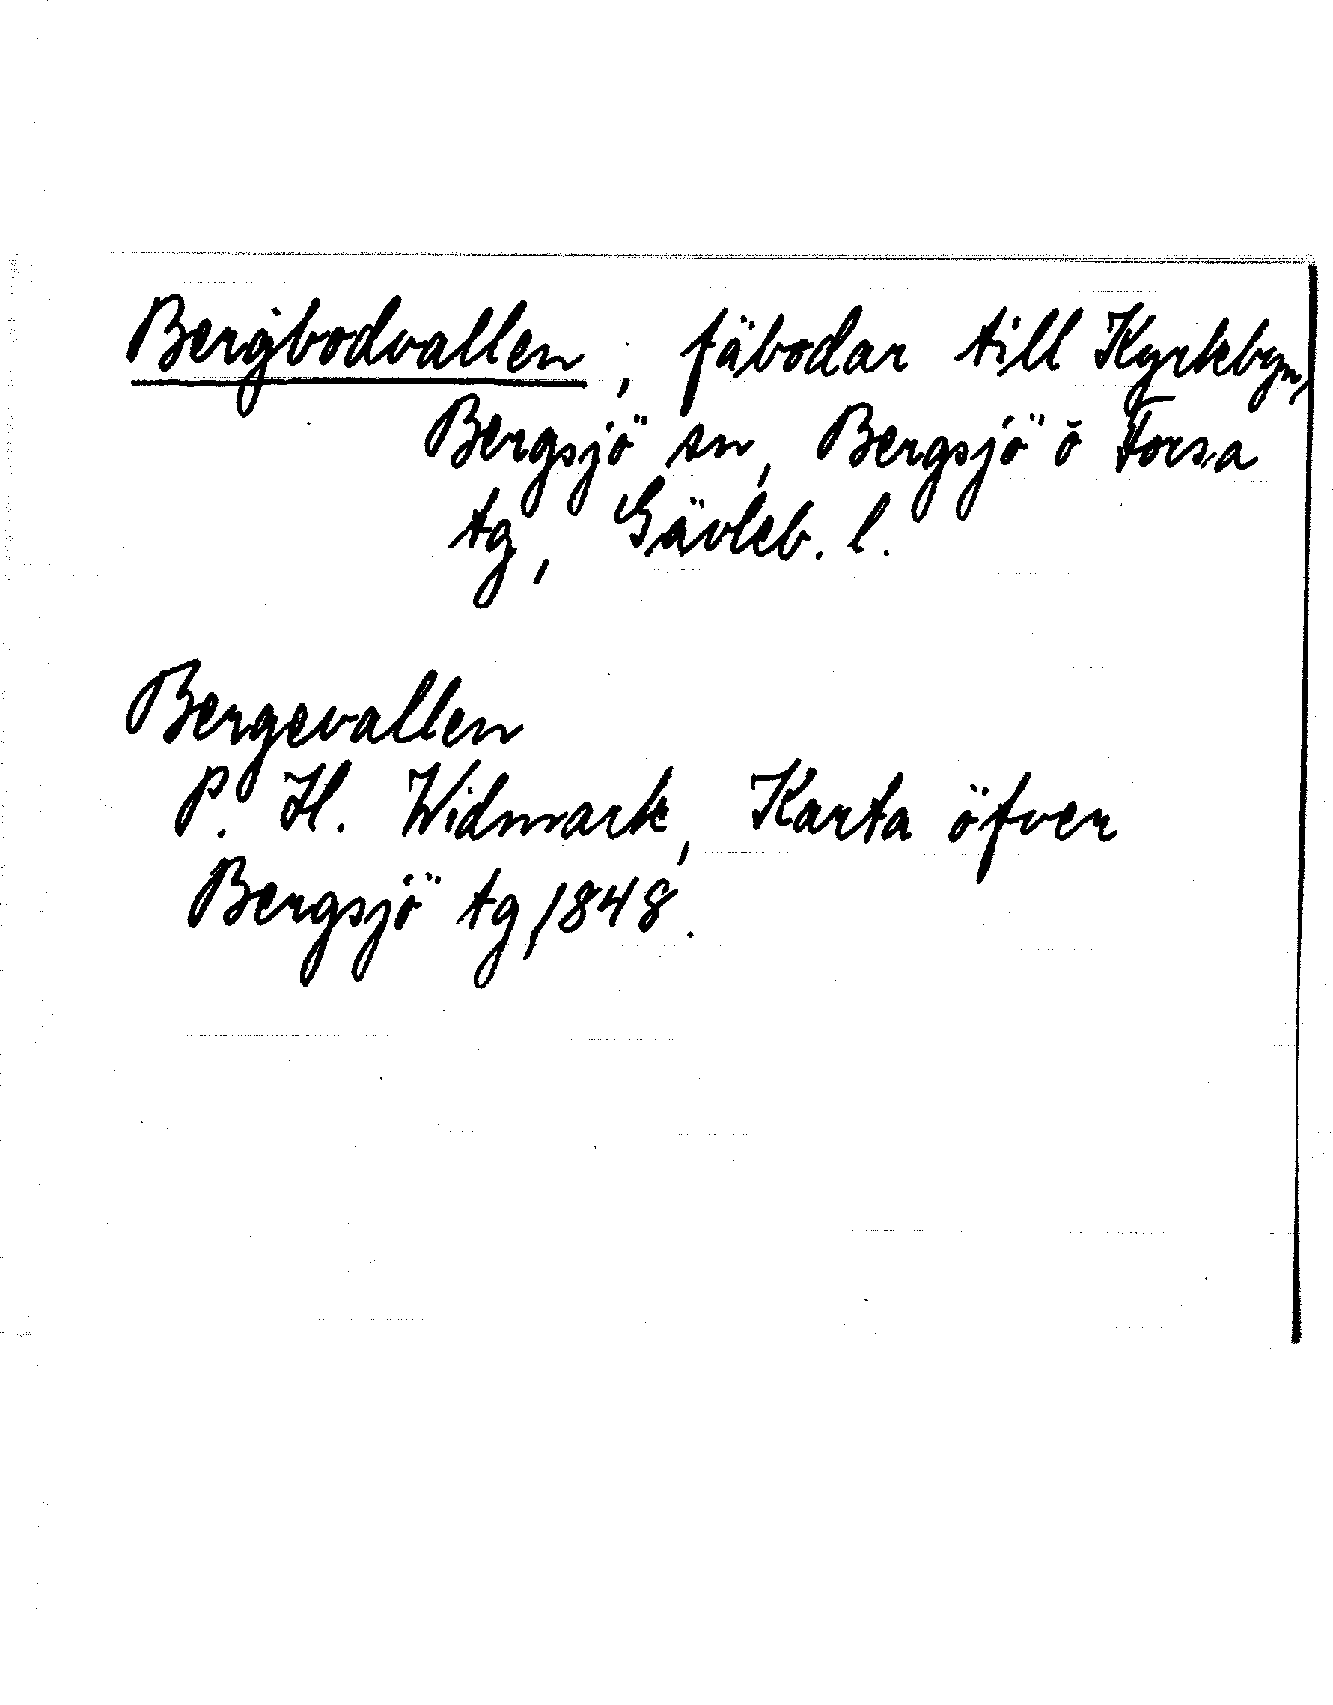 Bergbodvallen, fäbodar till Kyrkbyn,
Bergsjö sn, Bergsjö o Forsa
tg, Gävleb. l.
Bergevallen
P. H. Widmark, Karta öfver
Bergsjö tg, 1848.